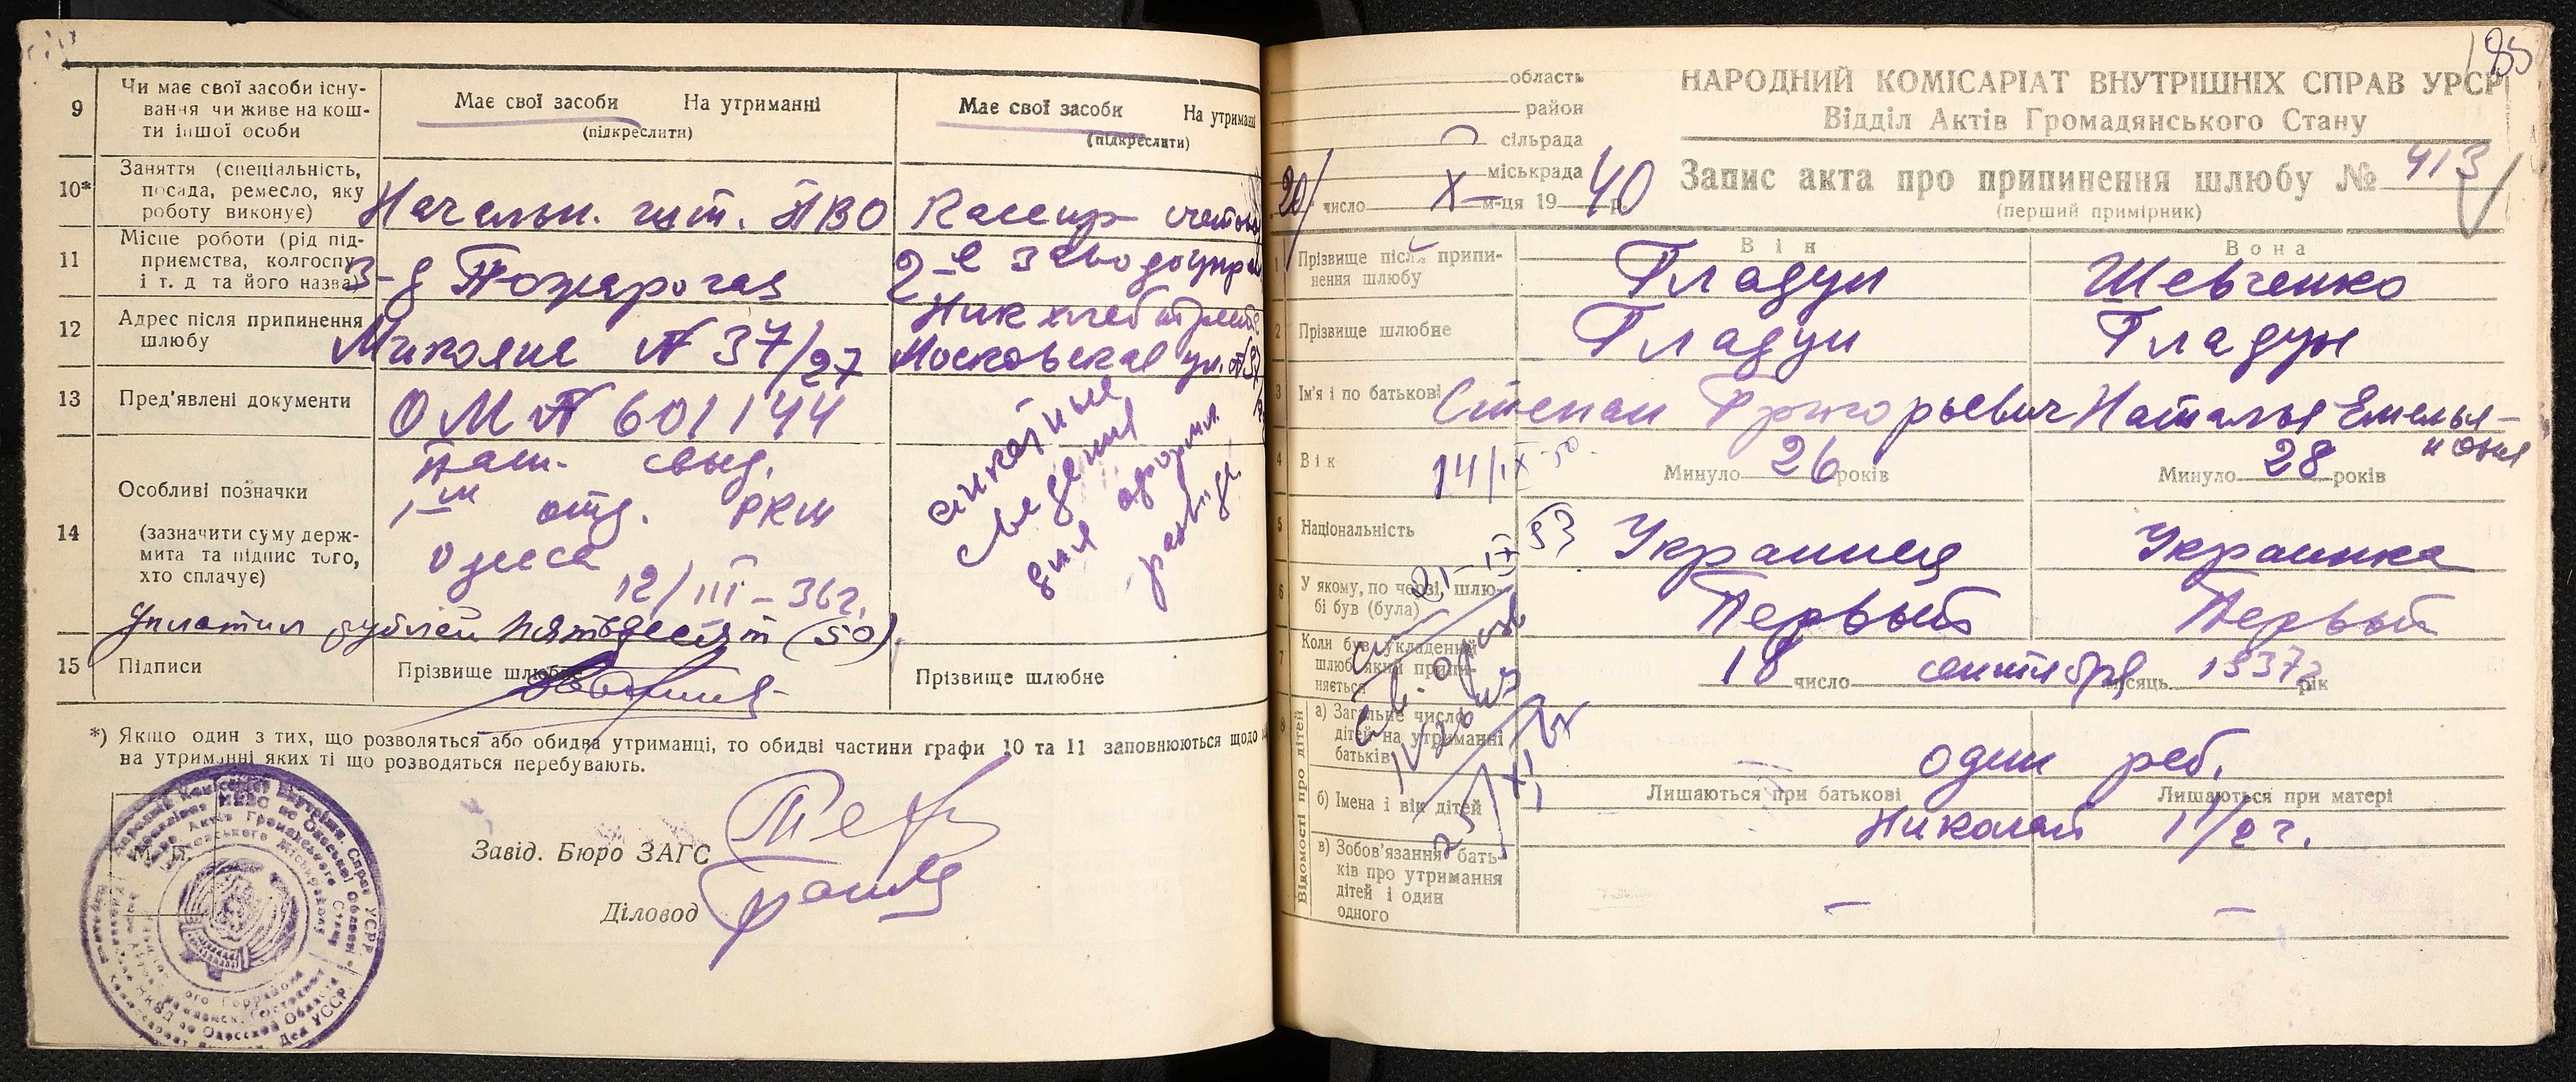 9
Чи має свої засоби існу-
вання чи живе на кош-
ти іншої особи
Має свої засоби На утриманні
(підкреслити)
Має свої засоби На утриманні
(підкреслити)
10*
Заняття (спеціальність,
посада, ремесло, яку
роботу виконує)
Начальн. шт. ПВО
Кассир
11
Місце роботи (рід під-
приємства, колгоспу
і т. д та його назва)
З-д
2-е Заводоупр
12
Адрес після припинення
шлюбу
№ 37/27
Московская ул. №
13
Пред'явлені документи
ОМ № 601144
14
Особливі позначки
(зазначити суму держ-
мита та підпис того,
хто сплачує)
выд.
отд. РКМ
Одесса
12/III-36г.
Уплатил рублей пятьдесят (50).
сведения
для
15
Підписи
Прізвище шлюбне
Прізвище шлюбне
*) Якщо один з тих, що розволяться або обидва утриманці, то обидві частини графи 10 та 11 заповнюються щодо
на утриманні яких ті що розводяться перебувають.
Завід. Бюро ЗАГС
Діловод
185
область
район
сільрада
міськрада
20 число X м-ця 1940 р.
НАРОДНИЙ КОМІСАРІАТ ВНУТРІШНІХ СПРАВ УРСР
Відділ Актів Громадянського Стану
Запис акта про припинення шлюбу № 413
(перший примірник)
Він
Вона
1
Прізвище після припи-
нення шлюбу
Гладун
Шевченко
2
Прізвище шлюбне
Гладун
Гладун
3
Ім'я і по батькові
Степан Григорьевич
Наталья Емелья-
новна
4
Вік
14/IX-50
Минуло 26 років
Минуло 28 років
5
Національність
Украинец
Украинка
6
У якому, по черзі, шлю-
бі був (була)
Первый
Первый
7
Коли був укладений
шлюб який припи-
няється
18 число сентября місяць 1937 рік
8
Відомості про дітей
а) Загальне число
дітей на утриманні
батьків
один реб.
б) Імена і вік дітей
Лишаються при батькові
Лишаються при матері
Николай 1 1/2 г.
в) Зобов'язання бать-
ків про утримання
дітей і один
одного